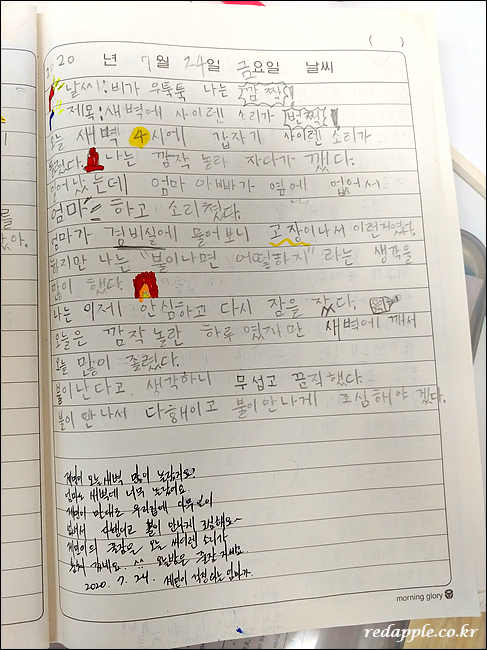 ( )
2020 년 7월 24일 금요일 날씨
날씨: 비가 우툭툭 나는 깜짝!
제목: 새벽에 사이렌 소리가 번쩍!
오늘 새벽 4시에 갑자기 사이렌 소리가
들렸다. 나는 깜작 놀라 자다가 깼다.
일어났는데 엄마 아빠가 옆에 없어서
엄마~ 하고 소리쳤다.
엄마가 경비실에 물어보니 고장이나서 이런거였다.
하지만 나는 "불이나면 어떨하지" 라는 생각을
많이 했다.
나는 이제 안심하고 다시 잠을 잤다.
오늘은 깜작 놀란 하루였지만 새벽에 깨서
오늘 많이 졸렸다.
불이난다고 생각하니 무섭고 끔직했다.
불이 안나서 다행이고 불이안나게 조심해야겠다.
오늘 새벽 많이 놀랐지요?
엄마도 새벽에 너무 놀랐어요
불이 안나게 조심해요~
오늘 싸이렌 소리가
^^ 오늘밤은 꿀잠 자세요
2020. 7. 24. 엄마가
morning glory
redapple.co.kr